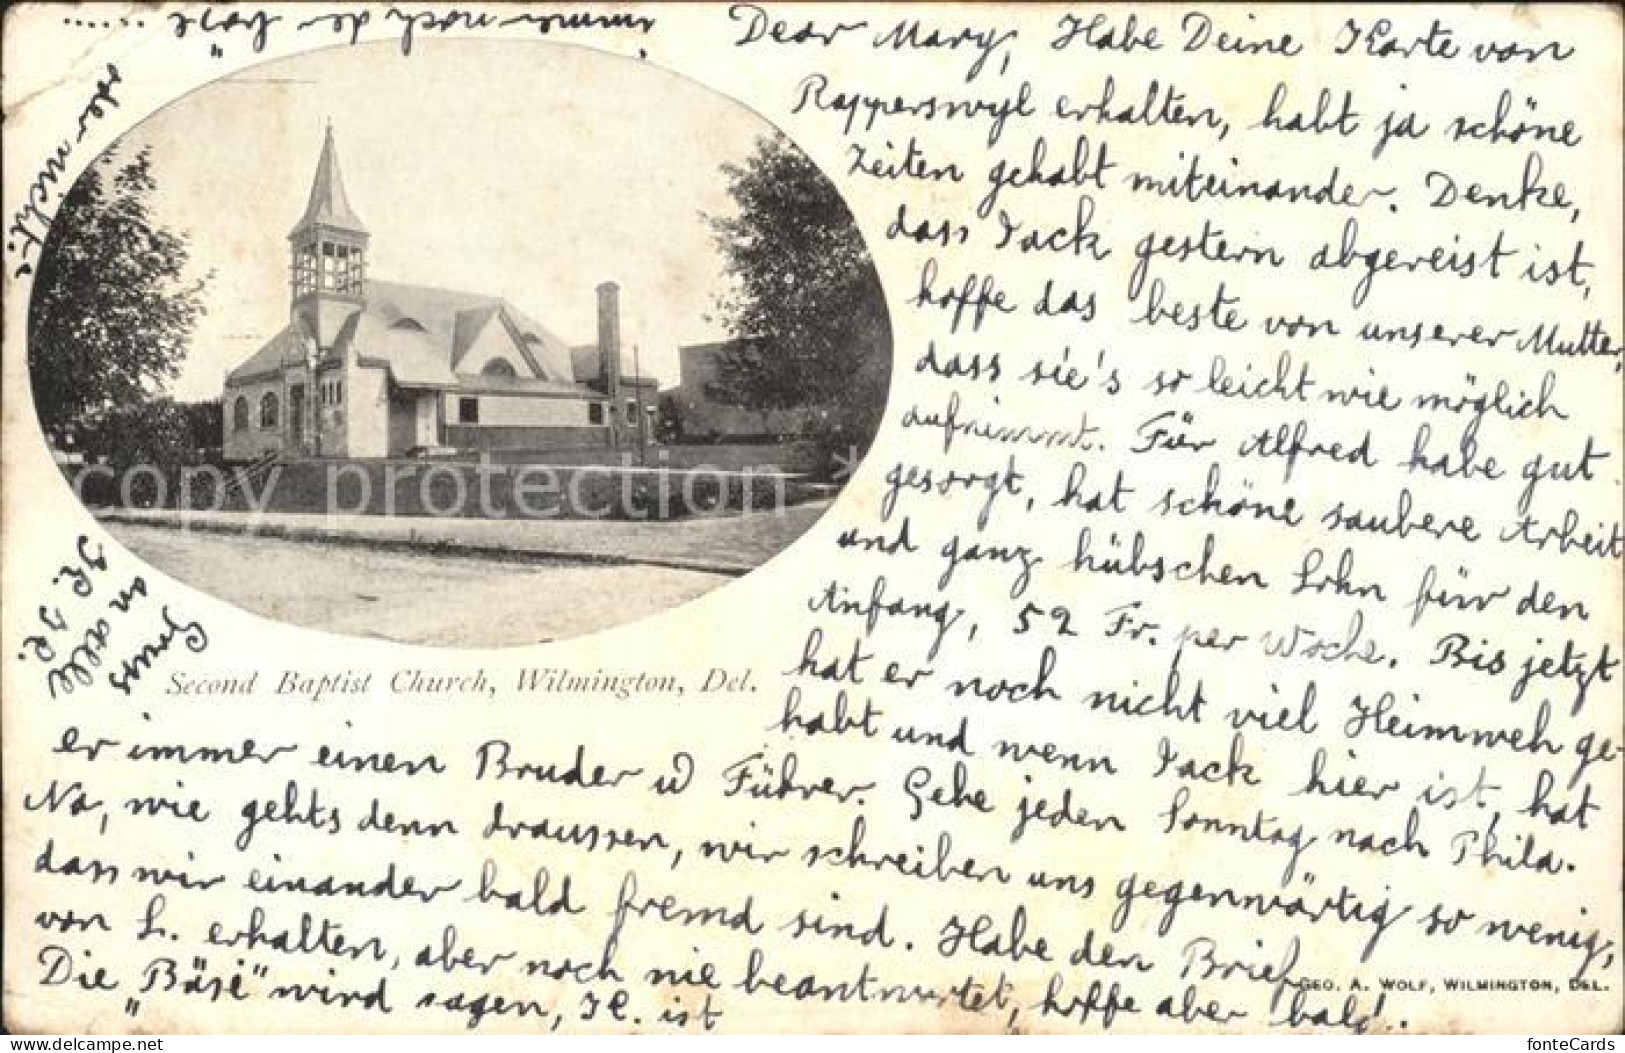 Dear Mary, Habe Deine Karte von
Rapperswyl erhalten, habt ja schöne
Zeiten gehabt miteinander. Denke,
dass Jack gestern abgereist ist,
hoffe das beste von unserer Mutter,
dass sie's so leicht wie möglich
aufnimmt. Für Alfred habe gut
gesorgt, hat schöne saubere Arbeit
und ganz hübschen Lohn für den
Anfang, 52 Fr. per Woche. Bis jetzt
hat er noch nicht viel Heimweh ge-
habt und wenn Jack hier ist, hat
er immer einen Bruder u Führer. Gehe jeden Sonntag nach Phila.
Na, wie gehts denn draussen, wir schreiben uns gegenwärtig so wenig,
dass wir einander bald fremd sind. Habe den Brief
von L. erhalten, aber noch nie beantwortet, hoffe aber bald.
Die „Bäsi" wird sagen, K. ist
immer noch der
oder nicht?
Gruss
an alle
Second Baptist Church, Wilmington, Del.
GEO. A. WOLF, WILMINGTON, DEL.
copy protection
fonteCards
www.delcampe.net